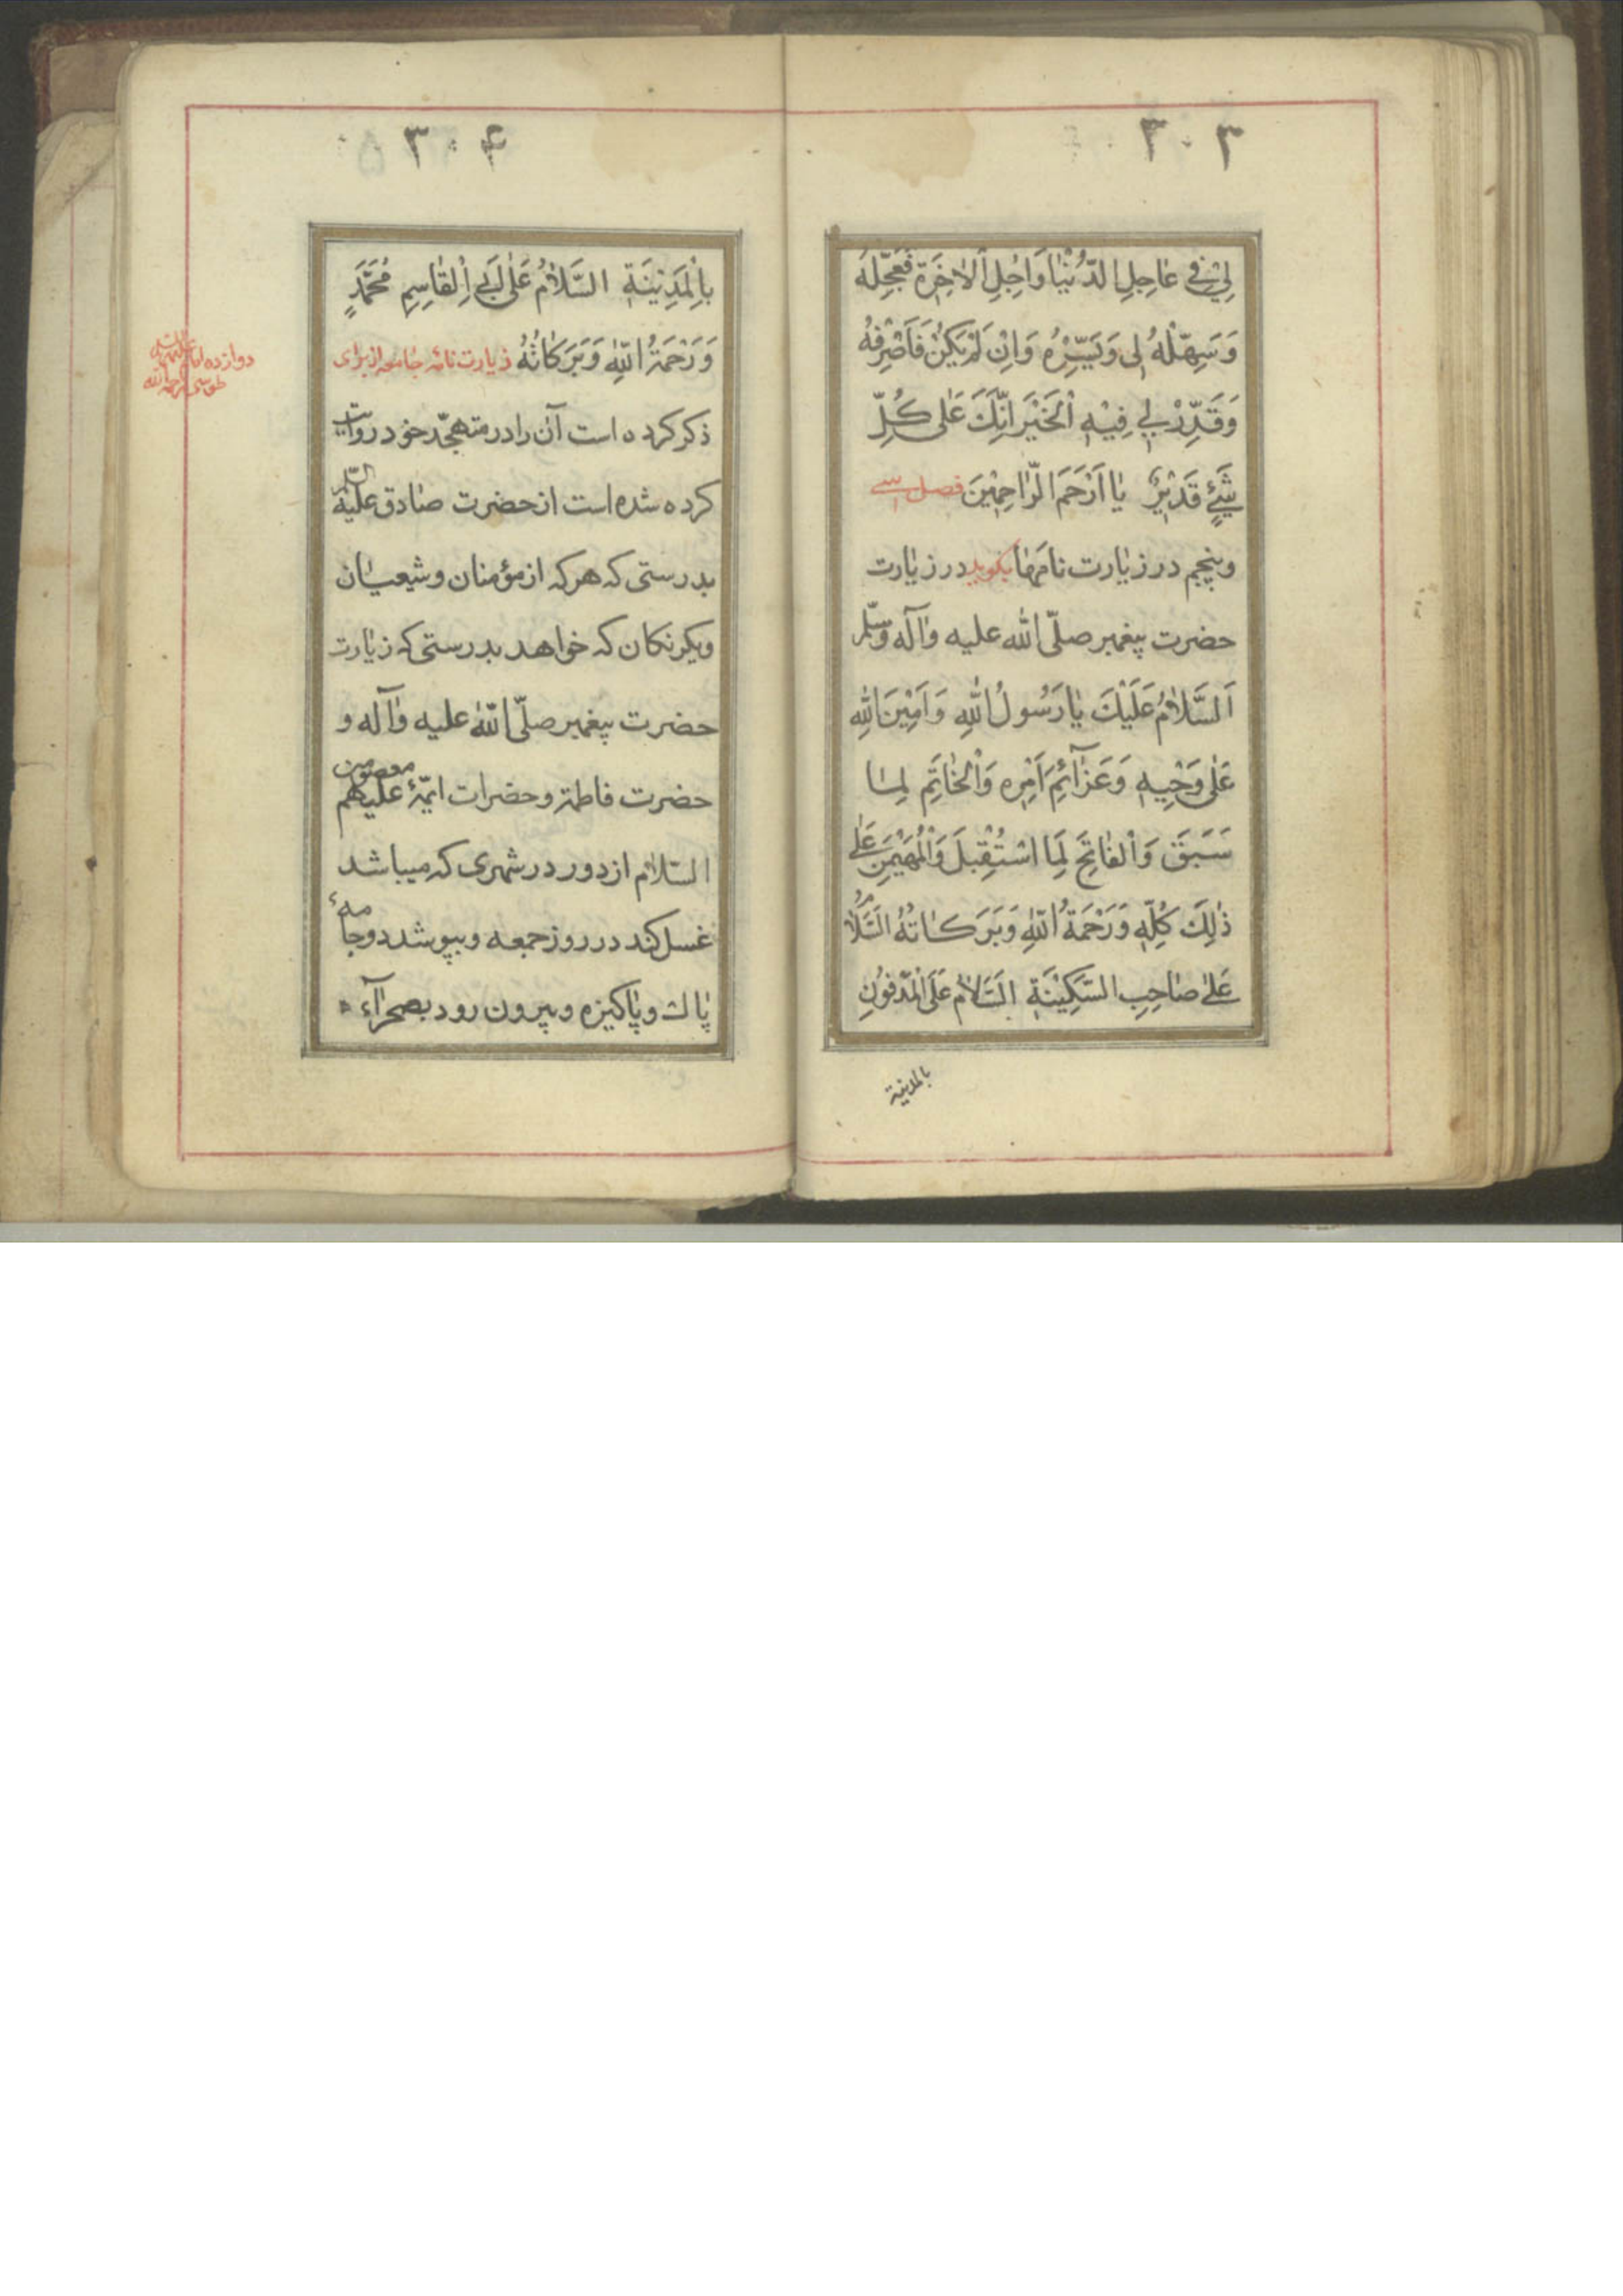 ٣٠٣
لِي فِي عٰاجِلِ الدُّنْيٰا وَ اٰجِلِ الْاٰخِرَةِ فَعَجِّلْهُ
وَسَهِّلْهُ لِى وَيَسِّرْهُ وَاِنْ لَمْ يَكُنْ فَاصْرِفْهُ
وَقَدِّرْ لِي فِيْهِ الْخَيْرَ اِنَّكَ عَلٰى كُلِّ
شَيْءٍ قَدِيْرٌ يٰا اَرْحَمَ الرّٰاحِمِيْنَ فصل سى
وپنجم در زيٰارت نامَهٰا بگويد در زيٰارت
حضرت پيغمبر صلّى الله عليه وٰآله وسّلم
اَلسَّلاٰمُ عَلَيْكَ يٰا رَسُولُ اللهِ وَ اَمِيْنَ اللهِ
عَلٰى وَحْيِهِ وَعَزٰآئِمِ اَمْرِه وَالْخٰاتِمِ لِمٰا
سَبَقَ وَالْفٰاتِحِ لِمَا اسْتُقْبِلَ وَالْمُهَيْمِنِ عَلٰى
ذٰلِكَ كُلِّهِ وَرَحْمَةُ اللّٰهِ وَبَرَكٰاتُهُ السَّلاٰمُ
عَلٰى صٰاحِبِ السَّكِيْنَةِ السَّلاٰمُ عَلَى الْمَدْفُوْنِ
بالمدينة
٣٠٤
بِالْمَدِيْنَةِ السَّلاٰمُ عَلٰى اَبِي الْقٰاسِمِ مُحَمَّدٍ
وَرَحْمَةُ اللّٰهِ وَبَرَكٰاتُهُ زيارت نامۀ جٰامعه از براى
دوازده امام
ذكر كرده است آن را در متهجّد خود روايت
كرده شده است از حضرت صٰادق عليه السّلم
بدرستى كه هر كه از مؤمنان و شيعيٰان
كه خواهد بدرستى كه زيٰارت
حضرت پيغمبر صلّى اللّٰه عليه وٰآله و
حضرت فاطمة و حضرات ائمّۀ معصومين عليهم
السّلاٰم از دور در شهرى كه ميباشد
غسل كند در روز جمعه و بپوشد دو جامۀ
پٰاك و پٰاكيزه و بيرون رود بصحرٰآء